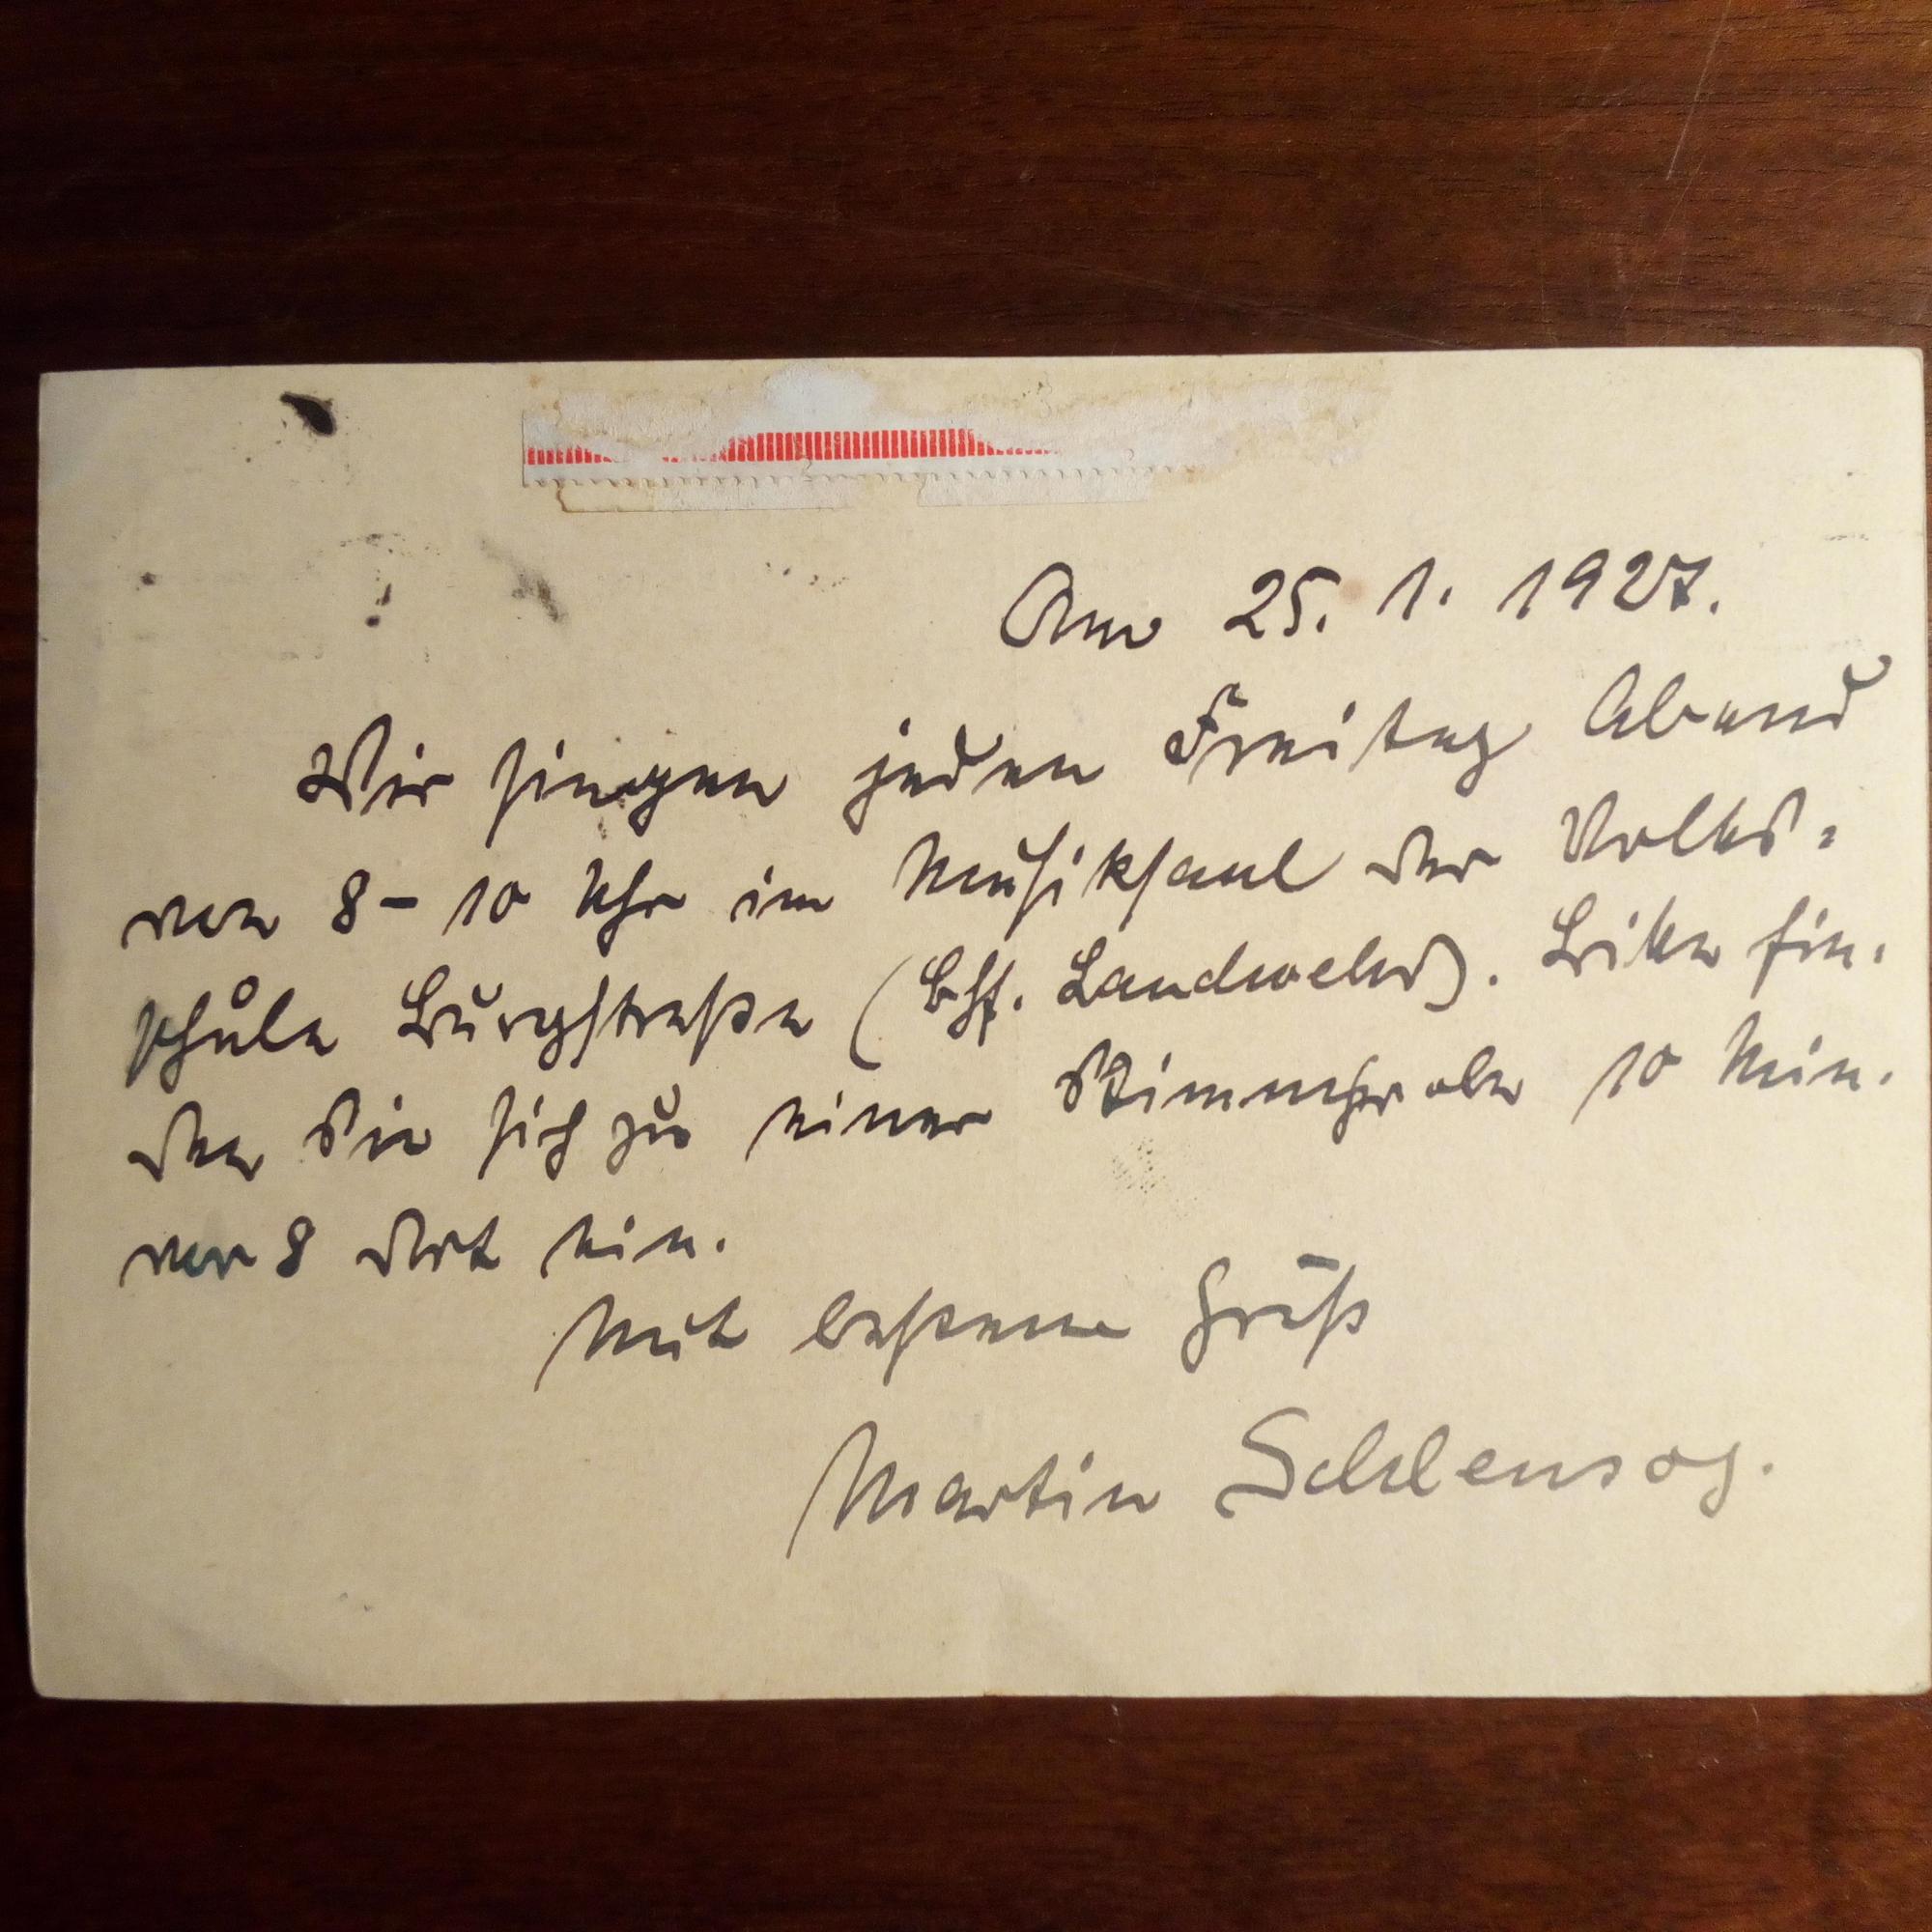 Am 25. 1. 1927.
Wir singen jeden Freitag Abend
von 8-10 Uhr im Musiksaal der Volks-
schule Burgstraße (Bhf. Landwehr). Bitte fin-
den Sie sich zu einer Stimmprobe 10 Min.
vor 8 dort ein.
Mit bestem Gruß
Martin Schlensog.